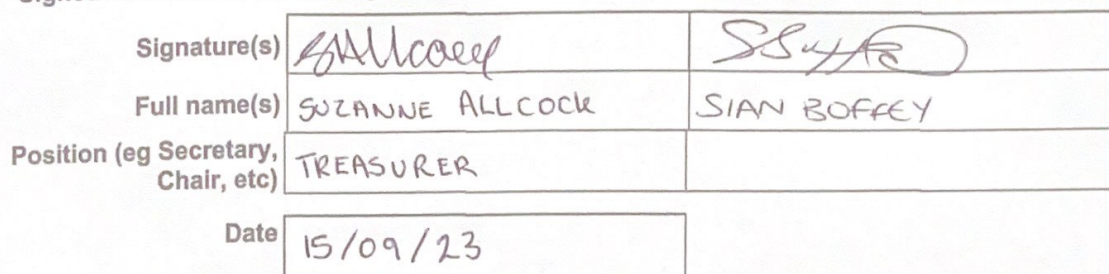 Signature(s) SAllcock
Full name(s) SUZANNE ALLCOCK SIAN BOFFEY
Position (eg Secretary, TREASURER
Chair, etc)
Date 15/09/23